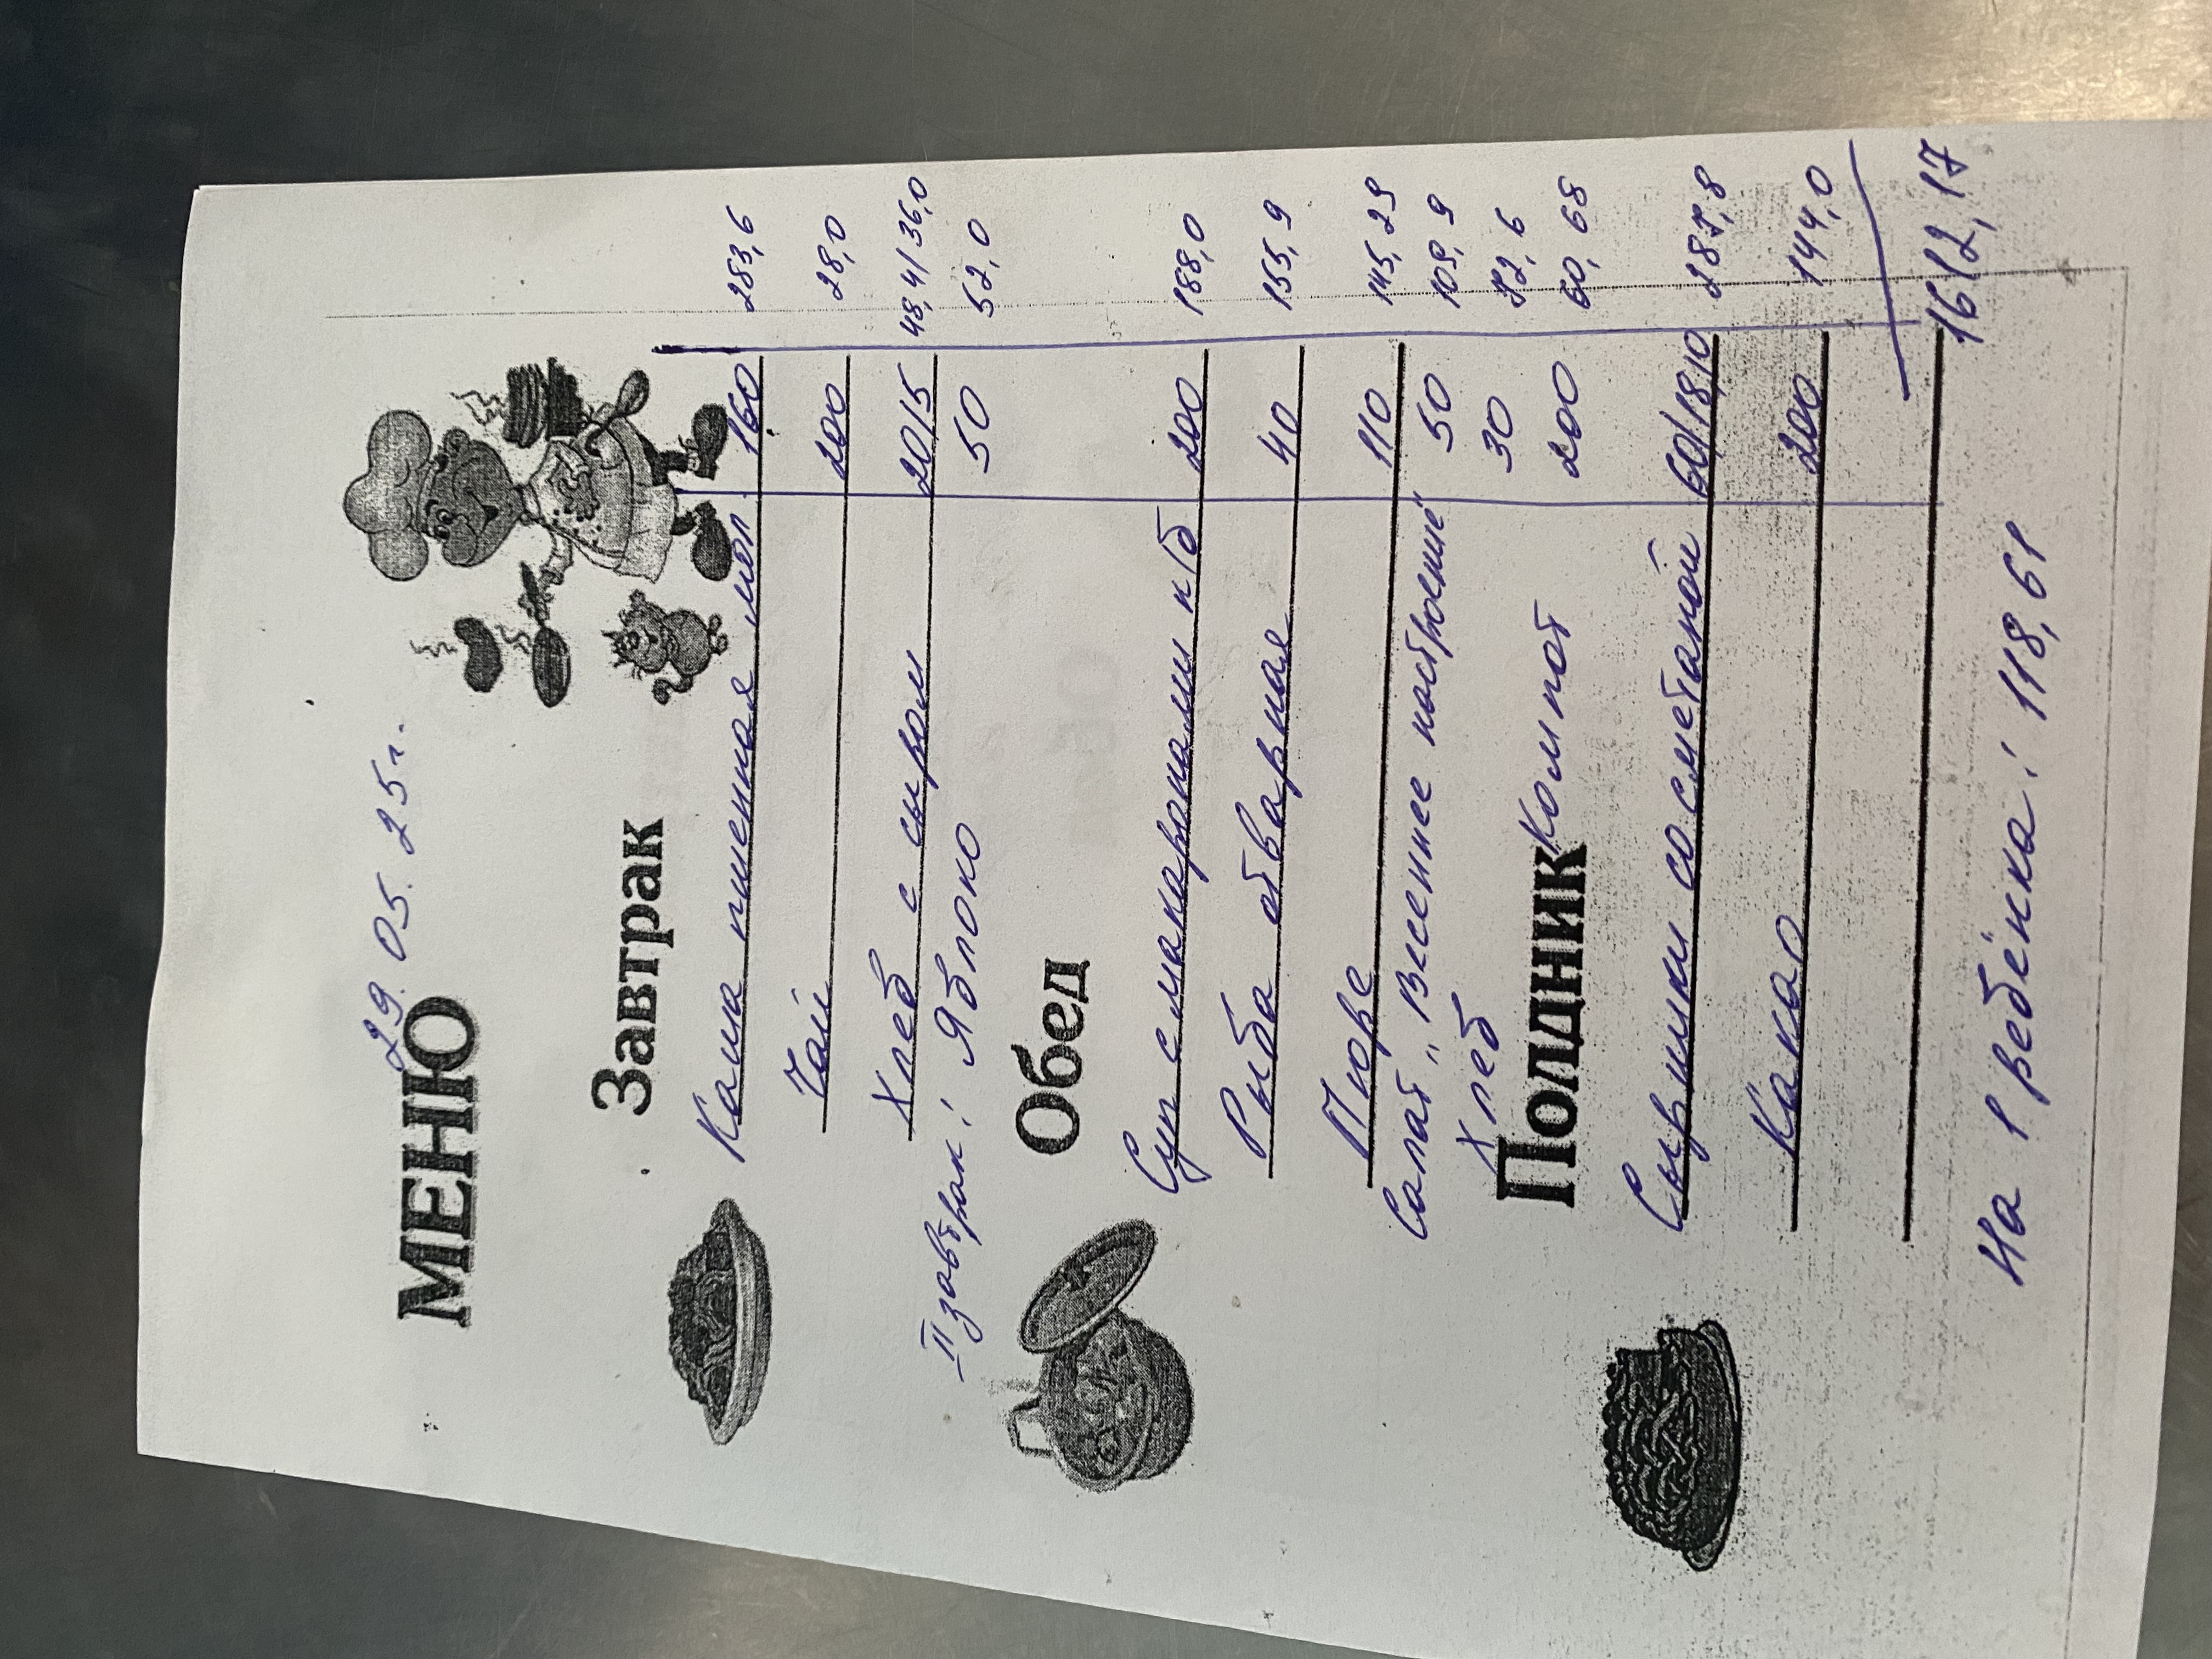 29.05.25г.
МЕНЮ
Завтрак
Каша пшенная мол. 160 283,6
Чай 200 28,0
Хлеб с сыром 20/5 48,4/36,0
II завтрак: Яблоко 50 52,0
Обед
Суп с макаронами к/б 200 188,0
Рыба отварная 40 155,9
Пюре 110 145,29
Салат „Весеннее настроение" 50 109,9
Хлеб 30 72,6
Компот 200 60,68
Полдник
Сырники со сметаной 60/18/10 287,8
Какао 200 144,0
1612,17
На 1 ребёнка: 118,61